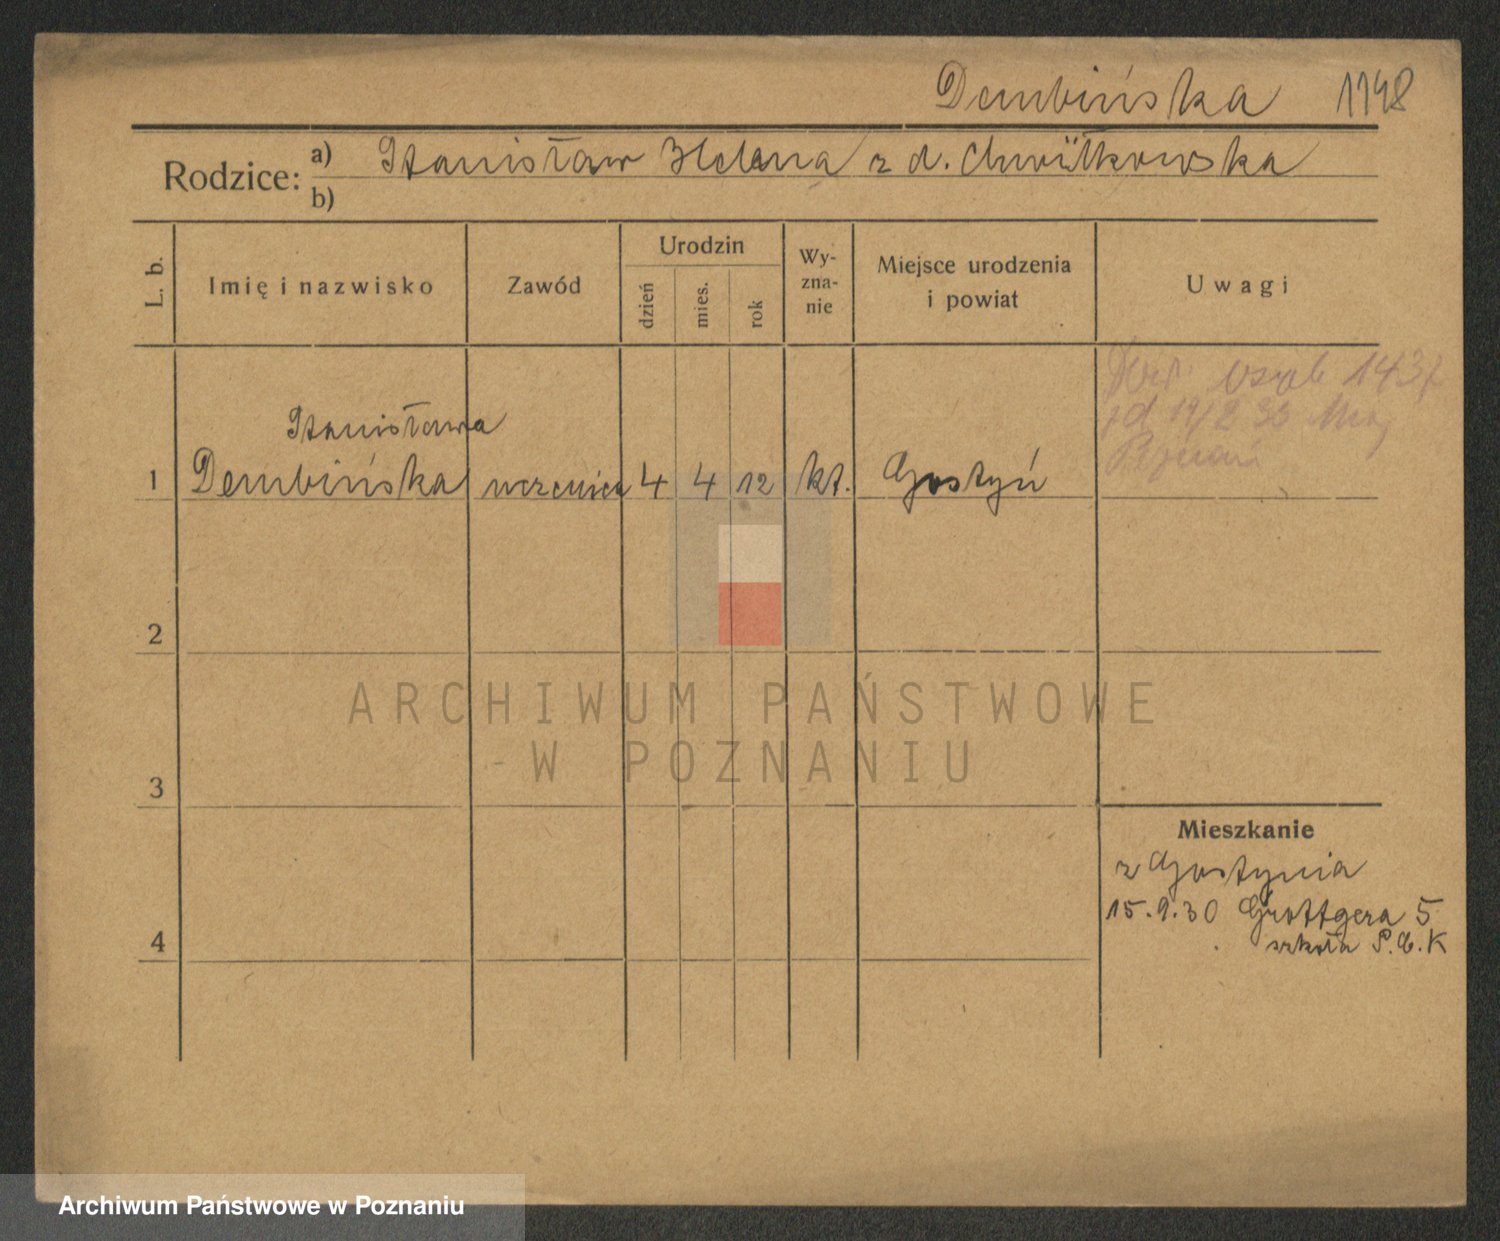 Dembińska 1148
Rodzice: a) Stanisław Helena z d.
b)
L. b. Imię i nazwisko Zawód Urodzin dzień mies. rok Wy-zna-nie Miejsce urodzenia i powiat Uwagi
osob 1437
Stanisława
1 Dembińska uczenica 4 4 12 kt. Gostyń
2
3
4
Mieszkanie
z Gostynia
15.9.30 Grottgera 5
szkoła P.C.K
ARCHIWUM PAŃSTWOWE
W POZNANIU
Archiwum Państwowe w Poznaniu